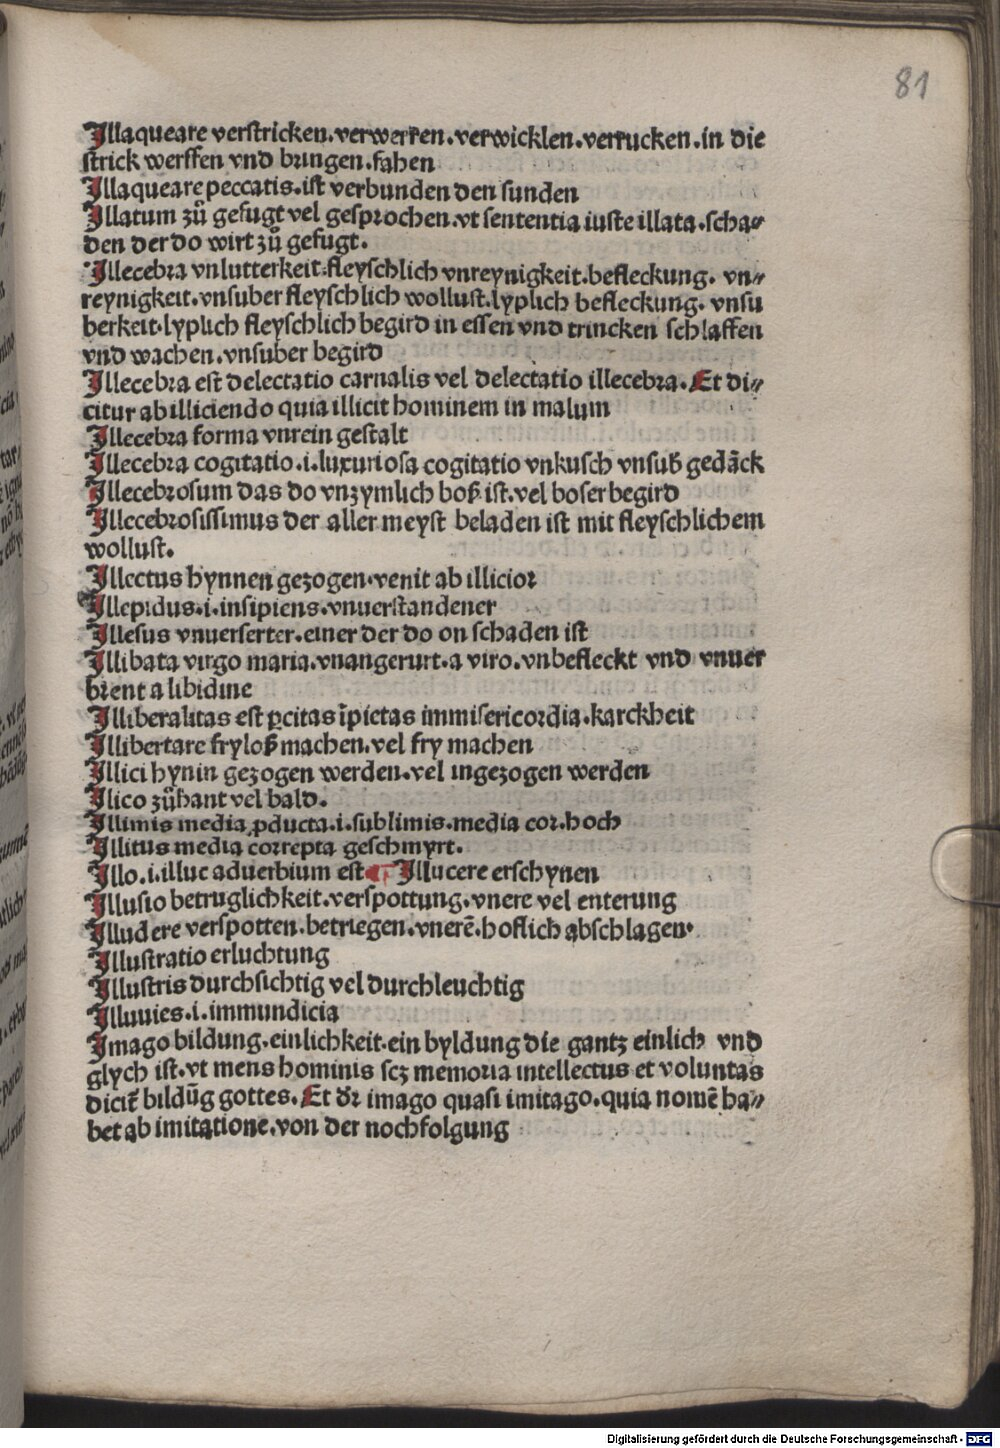 81
Illaqueare verstricken.verwerren.verwicklen.verrucken.in die
strick werffen vnd bringen.fahen
Illaqueare peccatis.ist verbunden den sunden
Illatum zů gefugt vel gesprochen.vt sententia iuste illata.scha⸗
den der do wirt zů gefugt.
Illecebra vnlutterkeit.fleyschlich vnreynigkeit.befleckung. vn⸗
reynigkeit.vnsuber fleyschlich wollust.lyplich befleckung. vnsu
berkeit.lyplich fleyschlich begird in essen vnd trincken schlaffen
vnd wachen.vnsuber begird
Illecebra est delectatio carnalis vel delectatio illecebra.Et di⸗
citur ab illiciendo quia illicit hominem in malum
Illecebra forma vnrein gestalt
Illecebra cogitatio.i.luxuriosa cogitatio vnkusch vnsub̃ gedāck
Illecebrosum das do vnzymlich boß ist.vel boser begird
Illecebrosissimus der aller meyst beladen ist mit fleyschlichem
wollust.
Illectus hynnen gezogen.venit ab illicior
Illepidus.i.insipiens.vnuerstandener
Illesus vnuerserter.einer der do on schaden ist
Illibata virgo maria.vnangerurt.a viro.vnbefleckt vnd vnuer
brent a libidine
Illiberalitas est ꝑcitas īpietas immisericordia.karckheit
Illibertare fryloß machen.vel fry machen
Illici hynin gezogen werden.vel ingezogen werden
Ilico zůhant vel bald.
Illimis media ꝓducta.i.sublimis.media cor.hoch
Illitus media correpta geschmyrt.
Illo.i.illuc aduerbium est ¶ Illucere erschynen
Illusio betruglichkeit.verspottung.vnere vel enterung
Illudere verspotten.betriegen.vnerē.hoflich abschlagen.
Illustratio erluchtung
Illustris durchsichtig vel durchleuchtig
Illuuies.i.immundicia
Imago bildung.einlichkeit.ein byldung die gantz einlich vnd
glych ist.vt mens hominis scz memoria intellectus et voluntas
dicit̃ bildūg gottes.Et dr̃ imago quasi imitago.quia nomē ha⸗
bet ab imitatione.von der nochfolgung
Digitalisierung gefördert durch die Deutsche Forschungsgemeinschaft - DFG